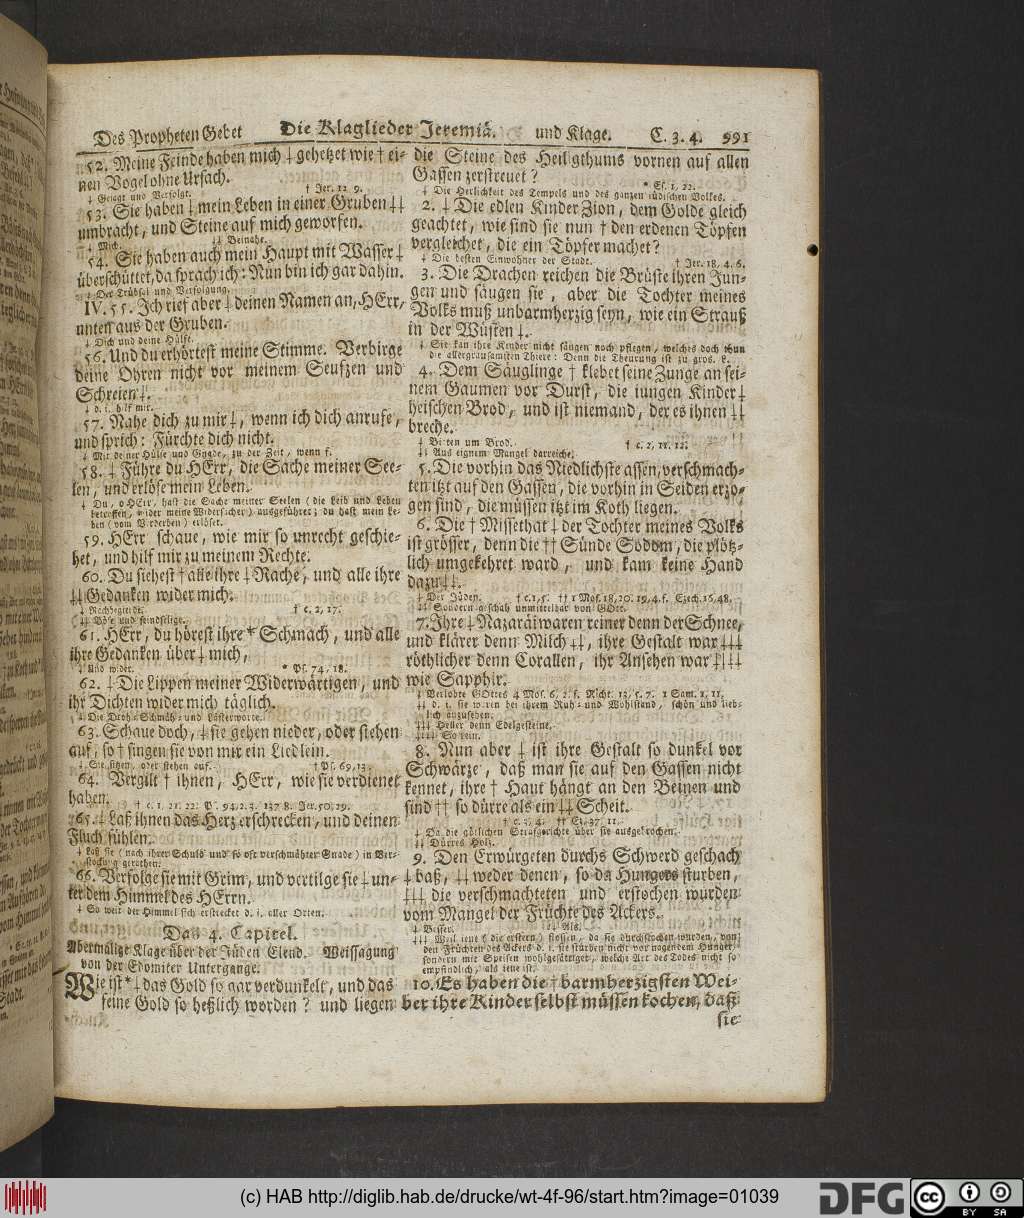 Des Propheten Gebet Die Klaglieder Jeremiä. und Klage. C. 3. 4. 991
52. Meine Feinde haben mich ‡ gehetzet wie † ei-
nen Vogel ohne Ursach.
‡ Gejagt und verfolgt. † Jer. 12 9.
53. Sie haben ‡ mein Leben in einer Gruben ‡‡
umbracht, und Steine auf mich geworfen.
‡ Mich. ‡‡ Beinahe.
54. Sie haben auch mein Haupt mit Wasser ‡
überschüttet, da sprach ich: Nun bin ich gar dahin.
‡ Der Trübsal und Verfolgung.
IV. 55. Ich rief aber ‡ deinen Namen an, HErr,
unten aus der Gruben.
‡ Dich und deine Hülfe.
56. Und du erhörtest meine Stimme. Verbirge
deine Ohren nicht vor meinem Seufzen und
Schreien ‡.
‡ d. i. hilf mir.
57. Nahe dich zu mir ‡, wenn ich dich anrufe,
und sprich: Fürchte dich nicht.
‡ Mit deiner Hülfe und Gnade, zu der Zeit, wenn f.
58. ‡ Führe du HErr, die Sache meiner See-
len, und erlöse mein Leben.
‡ Du, o HErr, hast die Sache meiner Seelen (die Leib und Leben
betreffen, wider meine Widersacher) ausgeführet; du hast mein Le-
ben (vom Verderben) erlöset.
59. HErr schaue, wie mir so unrecht geschie-
het, und hilf mir zu meinem Rechte.
60. Du siehest † alle ihre ‡ Rache, und alle ihre
‡‡ Gedanken wider mich.
‡ Rachbegierde. † c. 2, 17.
‡‡ Böse und feindselige.
61. HErr, du hörest ihre * Schmach, und alle
ihre Gedanken über ‡ mich,
‡ Und wider. * Ps. 74, 18.
62. ‡ Die Lippen meiner Widerwärtigen, und
ihr Dichten wider mich täglich.
‡ Die Droh- Schmäh- und Lästerworte.
63. Schaue doch, ‡ sie gehen nieder, oder stehen
auf, so † singen sie von mir ein Liedlein.
‡ Sie sitzen, oder stehen auf. † Ps. 69, 13.
64. Vergilt † ihnen, HErr, wie sie verdienet
haben. † c. 1, 21. 22. Ps. 94, 2. 3. 137 8. Jer. 50, 29.
65. ‡ Laß ihnen das Herz erschrecken, und deinen
Fluch fühlen.
‡ Laß sie (nach ihrer Schuld und so oft verschmähter Gnade) in Ver-
stockung gerathen.
66. Verfolge sie mit Grim, und vertilge sie ‡ un-
ter dem Himmel des HErrn.
‡ So weit der Himmel sich erstrecket d. i. aller Orten.
Das 4. Capitel.
Abermalige Klage über der Jüden Elend. Weissagung
von der Edomiter Untergange.
Wie ist * ‡ das Gold so gar verdunkelt, und das
feine Gold so heßlich worden? und liegen
die Steine des Heiligthums vornen auf allen
Gassen zerstreuet? * Es. 1, 22.
‡ Die Herlichkeit des Tempels und des ganzen jüdischen Volkes.
2. ‡ Die edlen Kinder Zion, dem Golde gleich
geachtet, wie sind sie nun † den erdenen Töpfen
vergleichet, die ein Töpfer machet?
‡ Die besten Einwohner der Stadt. † Jer. 18, 4. 6.
3. Die Drachen reichen die Brüste ihren Jun-
gen und säugen sie, aber die Tochter meines
Volks muß unbarmherzig seyn, wie ein Strauß
in der Wüsten ‡.
‡ Sie kan ihre Kinder nicht säugen noch pflegen, welches doch thun
die allergrausamsten Thiere: Denn die Theurung ist zu gros. L.
4. Dem Säuglinge † klebet seine Zunge an sei-
nem Gaumen vor Durst, die jungen Kinder ‡
heischen Brod, und ist niemand, der es ihnen ‡‡
breche.
‡ Bitten um Brod. † c. 2, 11. 12.
‡‡ Aus eignem Mangel darreiche.
5. Die vorhin das Niedlichste assen, verschmach-
ten itzt auf den Gassen, die vorhin in Seiden erzo-
gen sind, die müssen itzt im Koth liegen.
6. Die † Missethat ‡ der Tochter meines Volks
ist grösser, denn die †† Sünde Sodom, die plötz-
lich umgekehret ward, und kam keine Hand
dazu ‡‡.
‡ Der Jüden. † c. 1, 5. †† 1 Mos. 18, 20. 19, 4. f. Ezech. 16, 48.
‡‡ Sondern geschah unmittelbar von GOtt.
7. Ihre ‡ Nazaräi waren reiner denn der Schnee,
und klärer denn Milch ‡‡, ihre Gestalt war ‡‡‡
röthlicher denn Corallen, ihr Ansehen war ‡‡‡‡
wie Sapphir.
‡ Verlobte GOttes 4 Mos. 6, 2. f. Richt. 13, 5. 7. 1 Sam. 1, 11.
‡‡ d. i. sie waren bei ihrem Ruh- und Wohlstand, schön und lieb-
lich anzusehen.
‡‡‡ Heller denn Edelgesteine.
‡‡‡‡ So rein.
8. Nun aber ‡ ist ihre Gestalt so dunkel vor
Schwärze, daß man sie auf den Gassen nicht
kennet, ihre † Haut hängt an den Beinen und
sind †† so dürre als ein ‡‡ Scheit.
† c. 3, 4. †† Ez. 37, 11.
‡ Da die götlichen Strafgerichte über sie ausgebrochen.
‡‡ Dürres Holz.
9. Den Erwürgeten durchs Schwerd geschach
‡ baß, ‡‡ weder denen, so da Hungers sturben,
‡‡‡ die verschmachteten und erstochen wurden
vom Mangel der Früchte des Ackers.
‡ Besser. ‡‡ Als.
‡‡‡ Weil jene (die erstern) flossen, da sie durchstochen wurden, von
den Früchten des Ackers d. i. sie sturben nicht vor nagendem Hunger,
sondern mit Speisen wohlgesättiget, welche Art des Todes nicht so
empfindlich, als jene ist.
10. Es haben die † barmherzigsten Wei-
ber ihre Kinder selbst müssen kochen, daß
sie
(c) HAB http://diglib.hab.de/drucke/wt-4f-96/start.htm?image=01039
DFG
cc BY SA